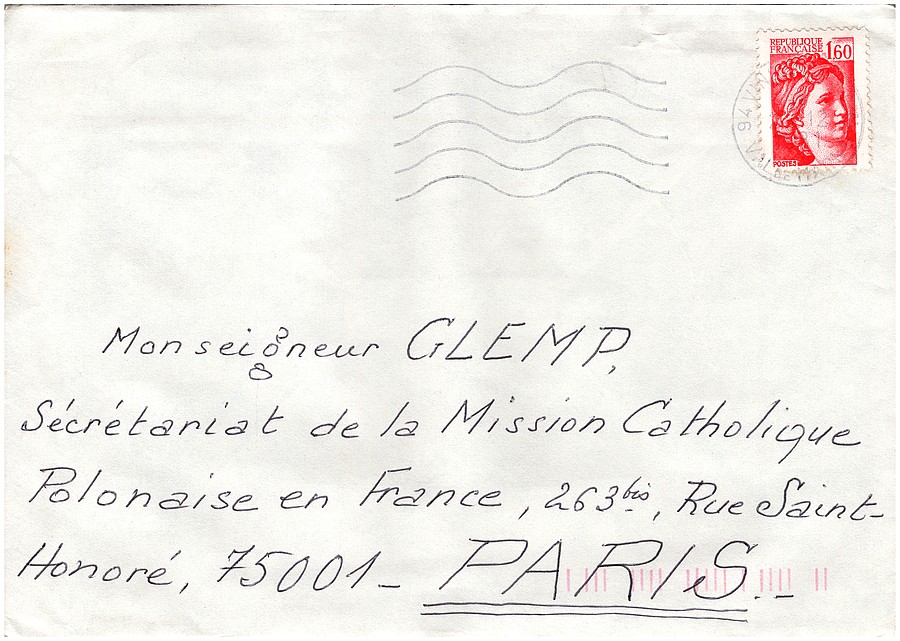 REPUBLIQUE
FRANÇAISE 1,60
POSTES
94
Monseigneur GLEMP,
Sécrétariat de la Mission Catholique
Polonaise en France, 263 bis, Rue Saint-
Honoré, 75001_ PARIS._